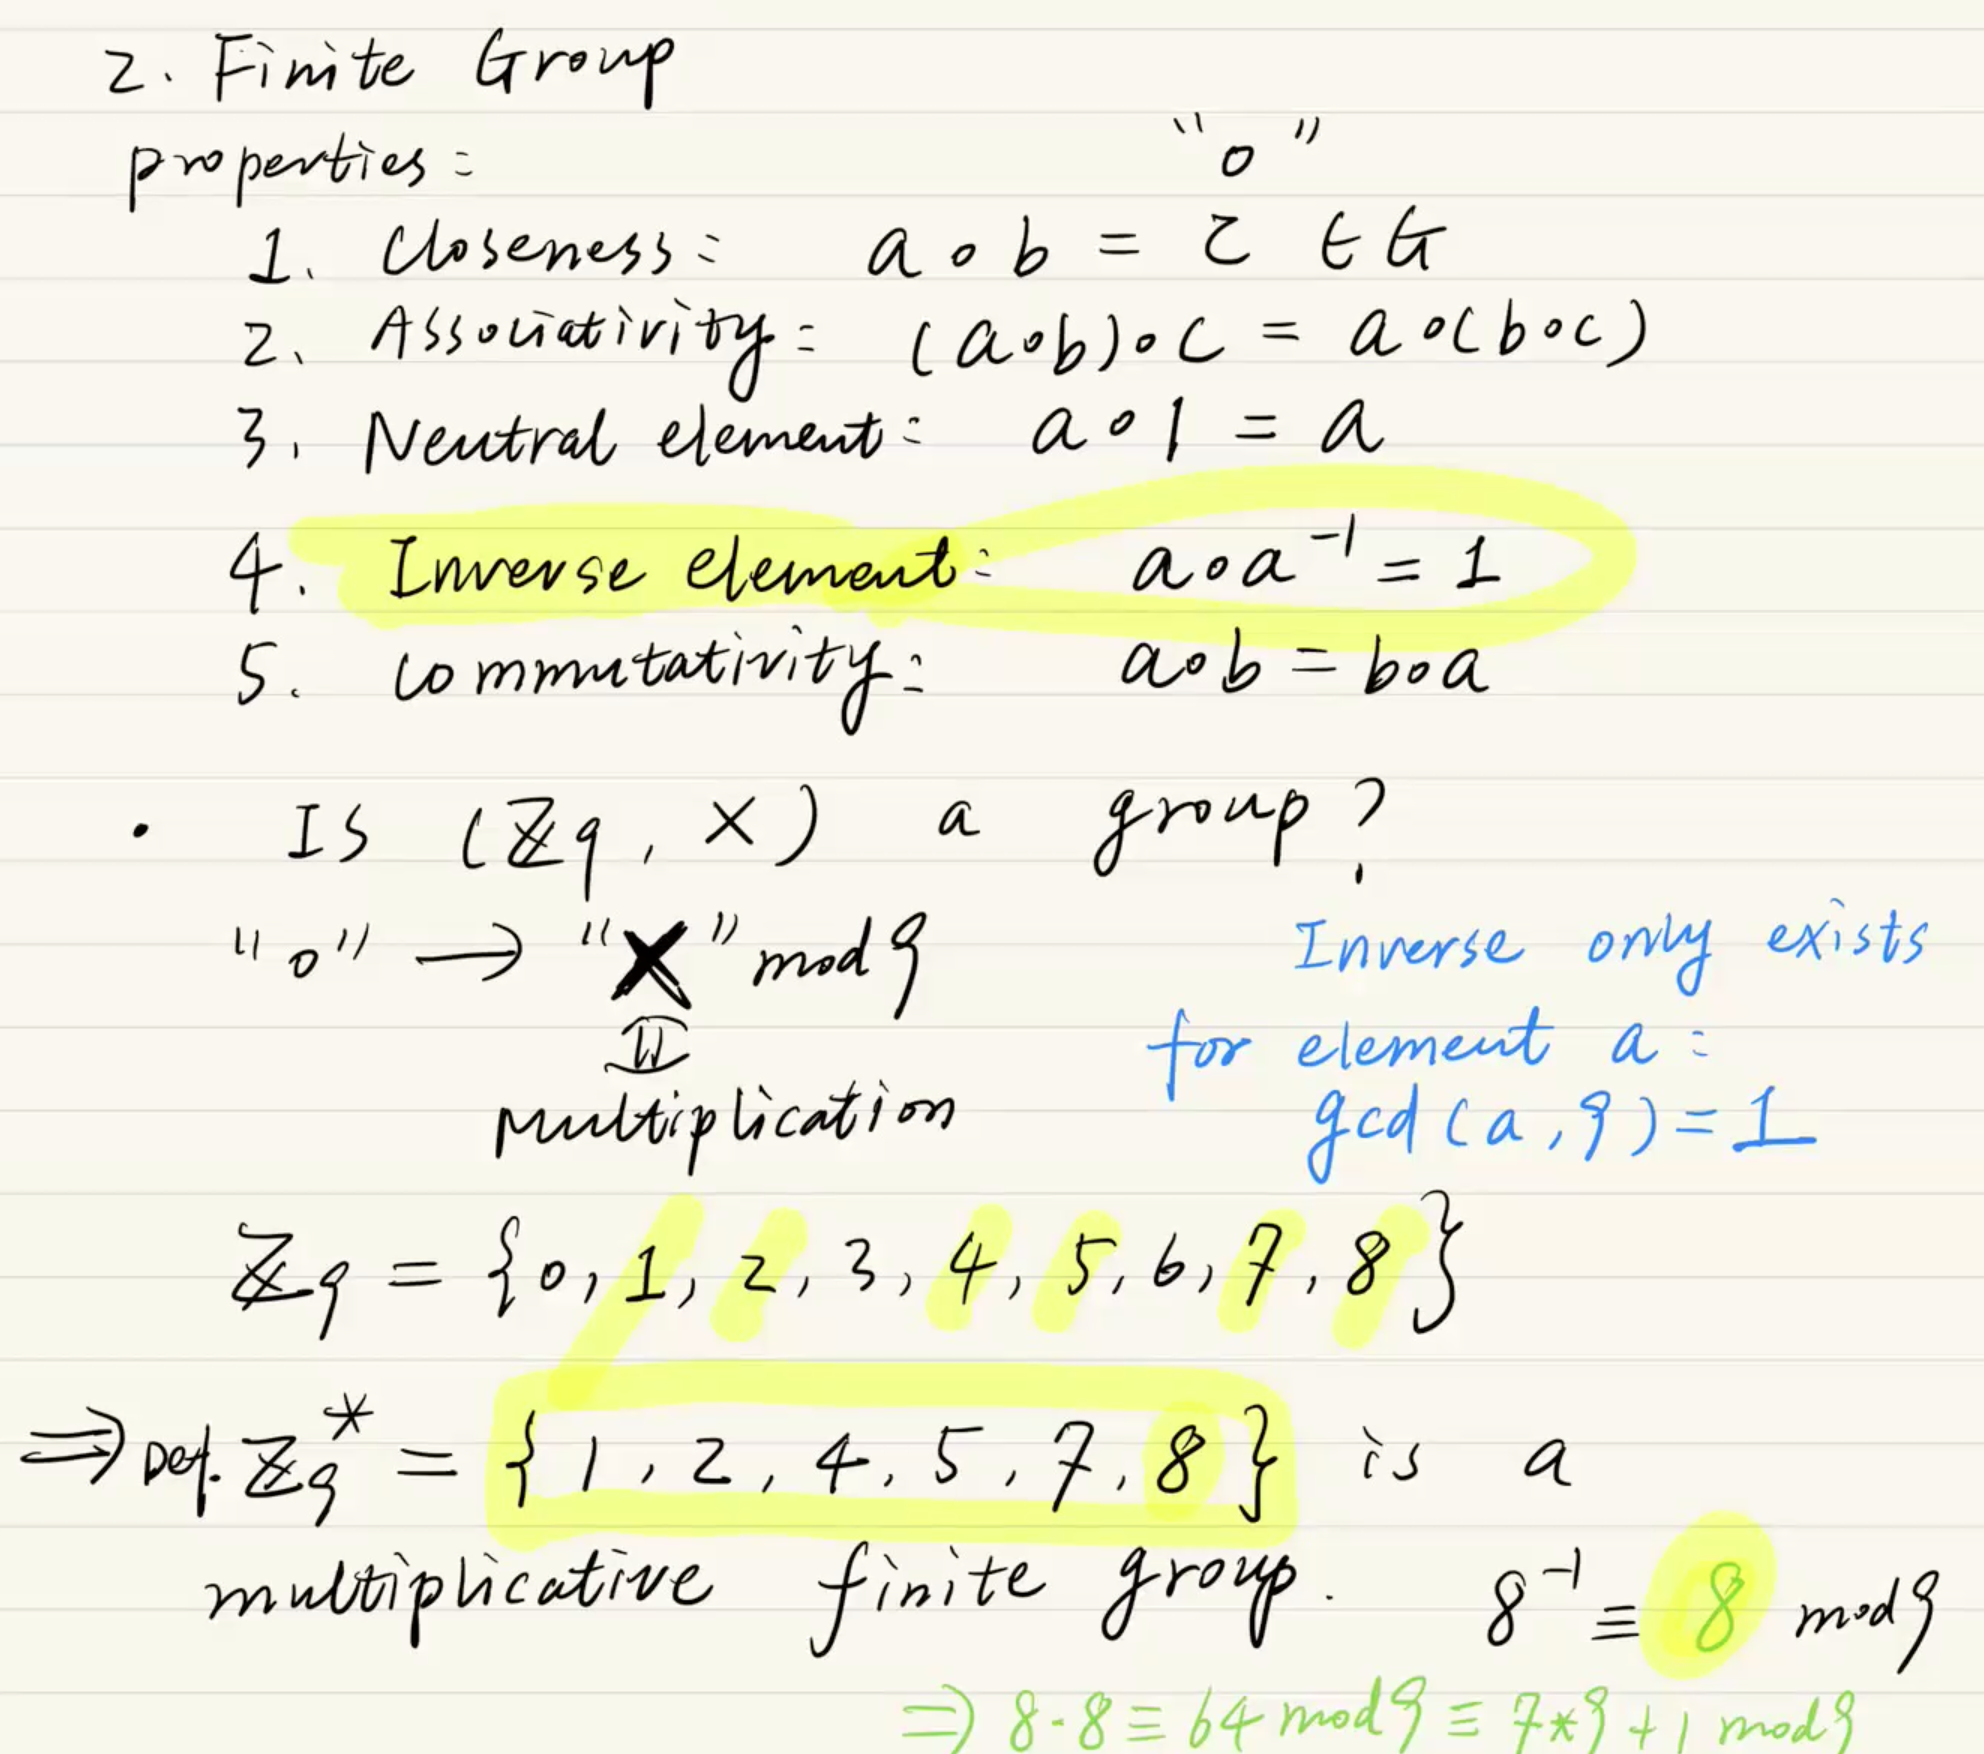 2. Finite Group
properties: "o"
1. Closeness: a o b = c ∈ G
2. Associativity: (a o b) o c = a o (b o c)
3. Neutral element: a o 1 = a
4. Inverse element: a o a⁻¹ = 1
5. Commutativity: a o b = b o a
• Is (ℤ9, ×) a group?
"o" → "×" mod 9
Inverse only exists
for element a:
gcd(a, 9) = 1
multiplication
ℤ9 = {0, 1, 2, 3, 4, 5, 6, 7, 8}
⇒ Def. ℤ9* = {1, 2, 4, 5, 7, 8} is a
multiplicative finite group. 8⁻¹ ≡ 8 mod 9
⇒ 8·8 ≡ 64 mod 9 ≡ 7*9+1 mod 9